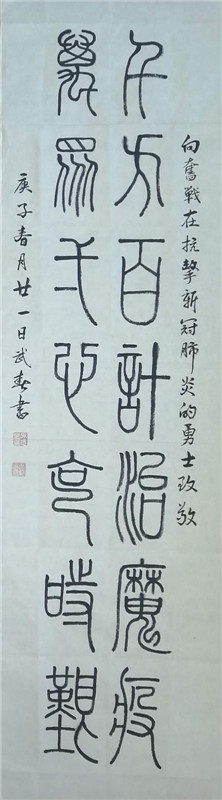 向奮戰在抗擊新冠肺炎的勇士致敬
千方百計治魔疫
萬眾弌心克時艱
庚子春月廿一日武春書